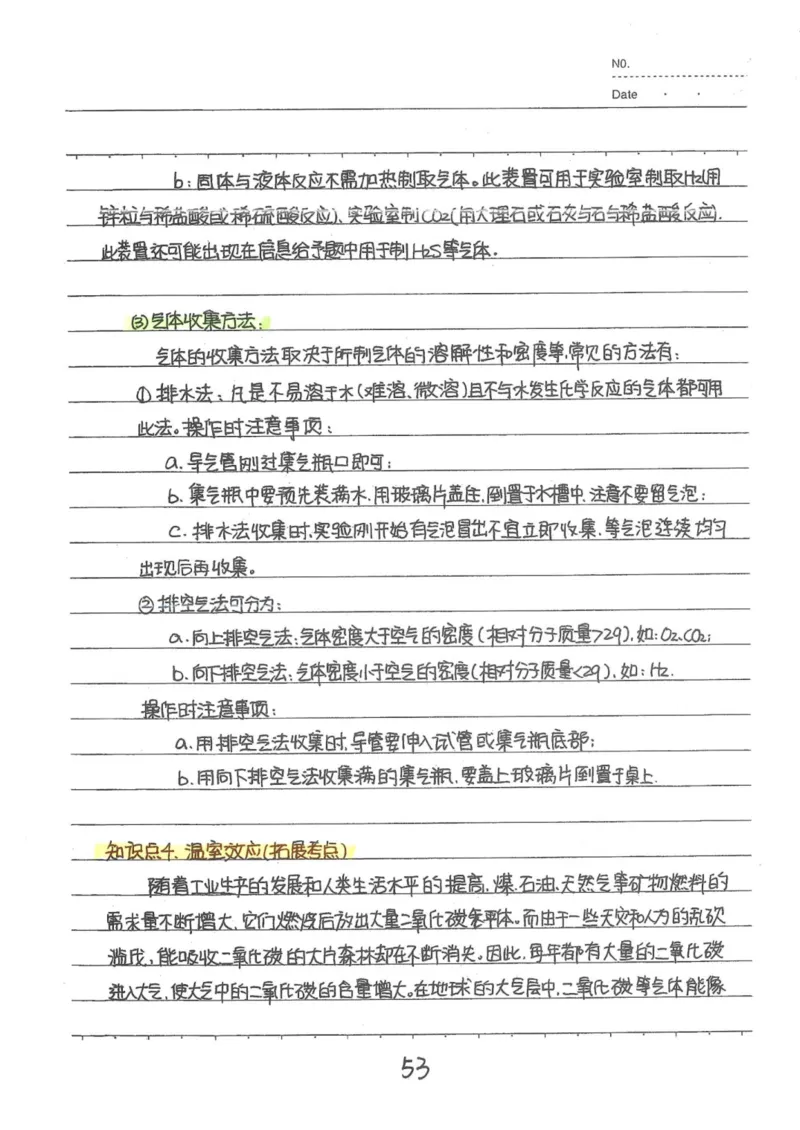 NO.
Date
b:固体与液体反应不需加热制取气体。此装置可用于实验室制取H2(用
锌粒与稀盐酸或稀硫酸反应)、实验室制CO2(用大理石或石灰石与稀盐酸反应).
此装置还可能出现在信息给予题中用于制H2S等气体.
(3)气体收集方法:
气体的收集方法取决于所制气体的溶解性和密度等,常见的方法有:
①排水法:凡是不易溶于水(难溶、微溶)且不与水发生化学反应的气体都可用
此法。操作时注意事项:
a.导气管刚过集气瓶口即可;
b.集气瓶中要预先装满水,用玻璃片盖住,倒置于水槽中,注意不要留气泡;
c.排水法收集时,实验刚开始有气泡冒出不宜立即收集,等气泡连续均匀
出现后再收集。
②排空气法可分为:
a.向上排空气法:气体密度大于空气的密度(相对分子质量>29),如:O2、CO2;
b.向下排空气法:气体密度小于空气的密度(相对分子质量<29),如:H2.
操作时注意事项:
a.用排空气法收集时,导管要伸入试管或集气瓶底部;
b.用向下排空气法收集满的集气瓶,要盖上玻璃片倒置于桌上.
知识点4、温室效应(拓展考点)
随着工业生产的发展和人类生活水平的提高,煤、石油、天然气等矿物燃料的
需求量不断增大,它们燃烧后放出大量二氧化碳气体。而由于一些天灾和人为的乱砍
滥伐,能吸收二氧化碳的大片森林却在不断消失。因此,每年都有大量的二氧化碳
进入大气,使大气中的二氧化碳的含量增大。在地球的大气层中,二氧化碳等气体能像
53